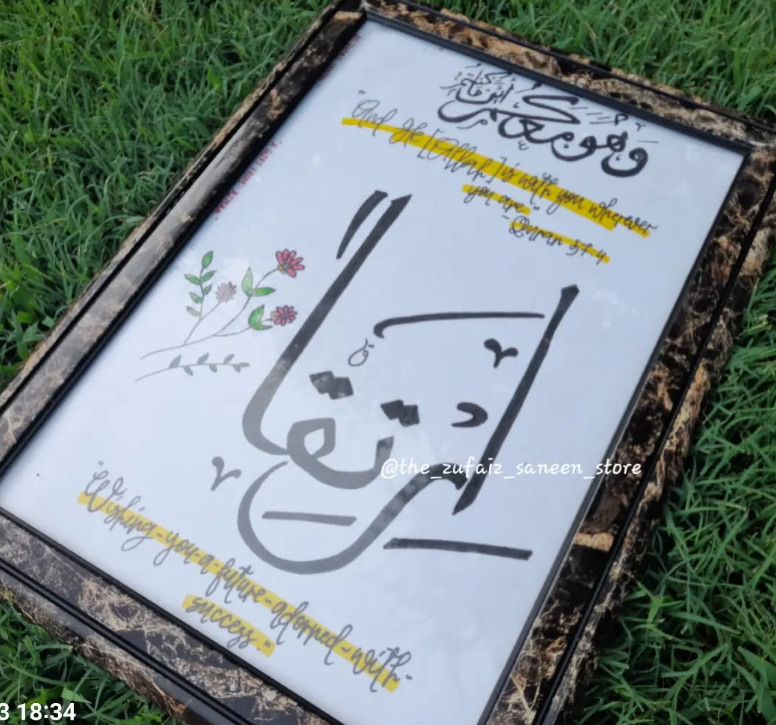 وهو معكم أين ما كنتم
"And He [Allah] is with you wherever
you are"
-Quran 57:4
ارتقاء
@the_zufajz_saneen_store
"Wishing-you-a-future-adorned-with-
success."
3 18:34